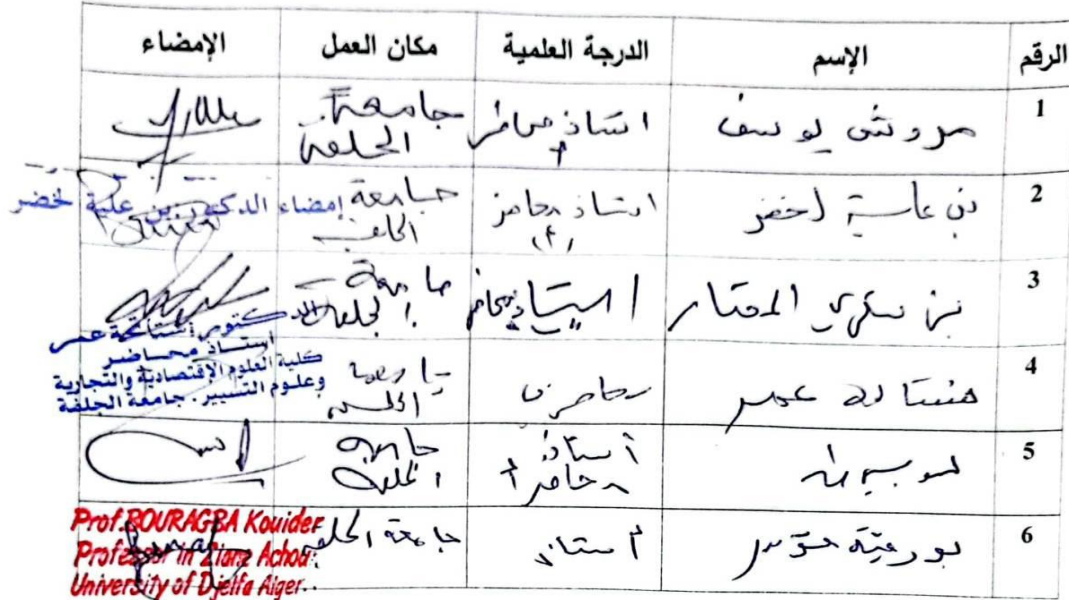 الرقم الإسم الدرجة العلمية مكان العمل الإمضاء
1 يوسف استاذ محاضر أ جامعة الجلفة
2 بن علية لخضر استاذ محاضر (أ) جامعة الجلفة
إمضاء الدكتور بن علية لخضر
3 المختار استاذ محاضر جامعة الجلفة
الدكتور عمر
استاذ محاضر
كلية العلوم الإقتصادية والتجارية
وعلوم التسيير. جامعة الجلفة
4 عمر محاضر جامعة الجلفة
5 أستاذ محاضر أ جامعة الجلفة
6 أستاذ جامعة الجلفة
Prof.BOURAGBA Kouider
Professor in Ziane Achour
University of Djelfa Alger